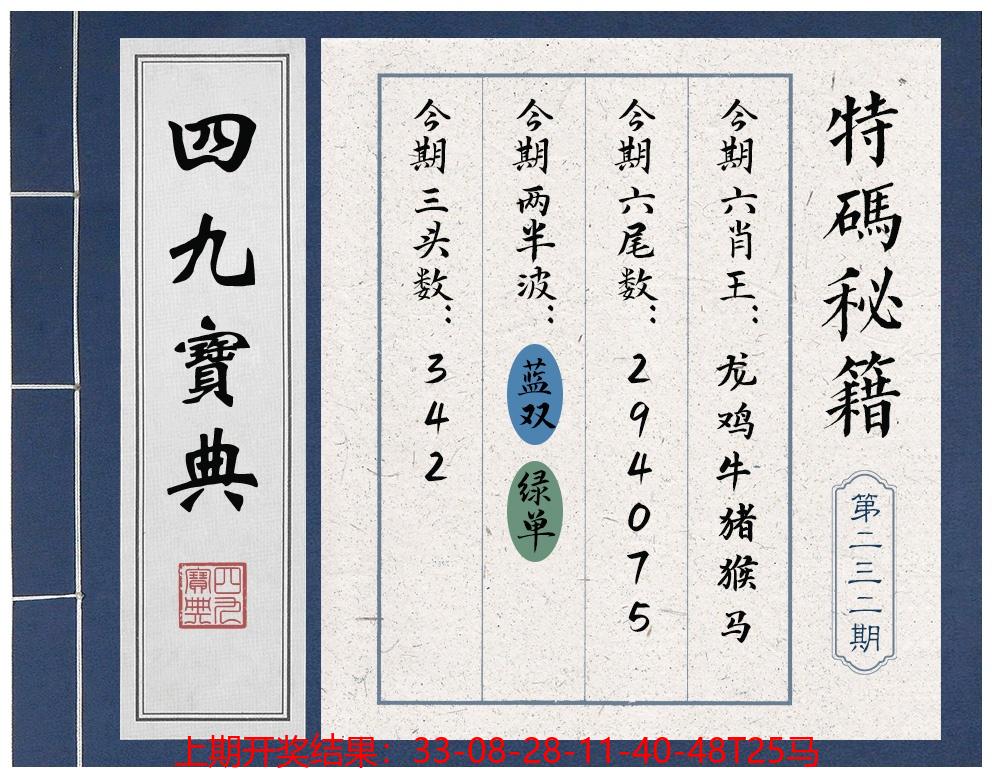 特碼秘籍
第二三二期
今期六肖王：龙鸡牛猪猴马
今期六尾数：294075
今期两半波：蓝双 绿单
今期三头数：342
四九寶典
四九寶典
上期开奖结果：33-08-28-11-40-48T25马